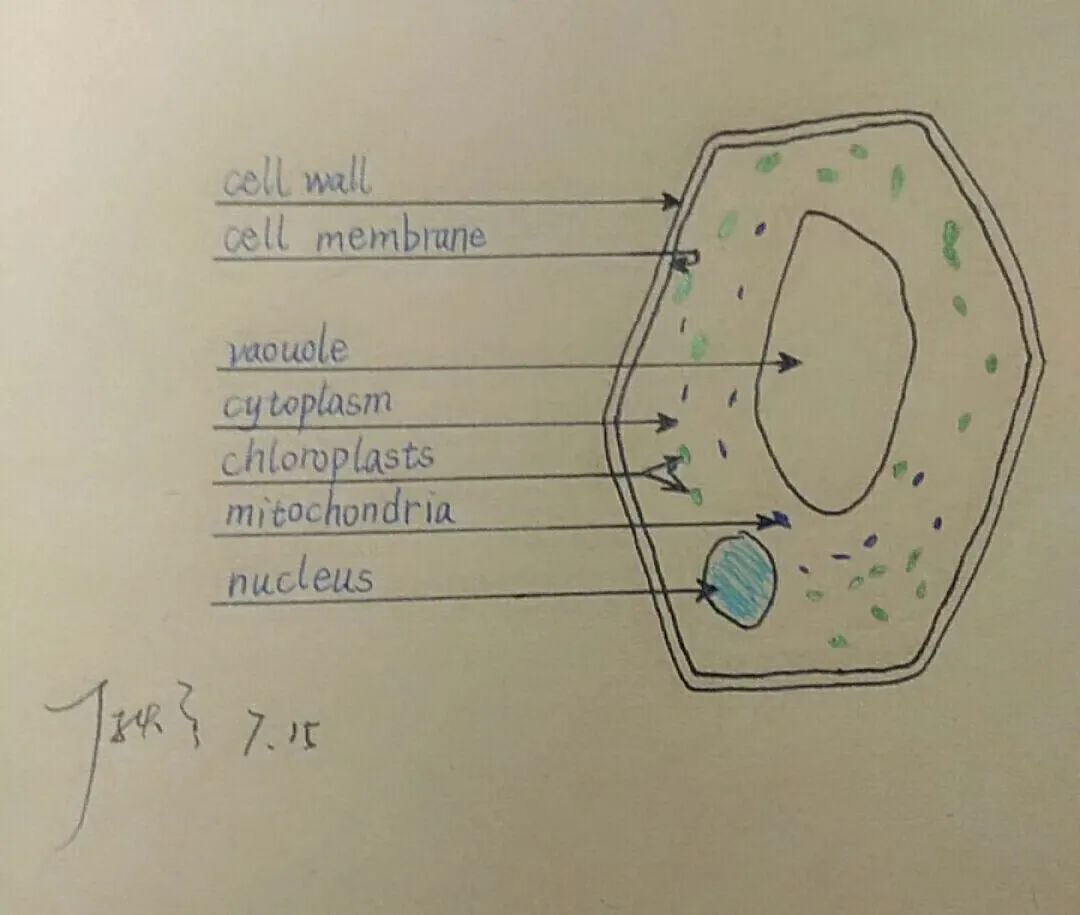 cell wall
cell membrane
vaouole
cytoplasm
chloroplasts
mitochondria
nucleus
7.15